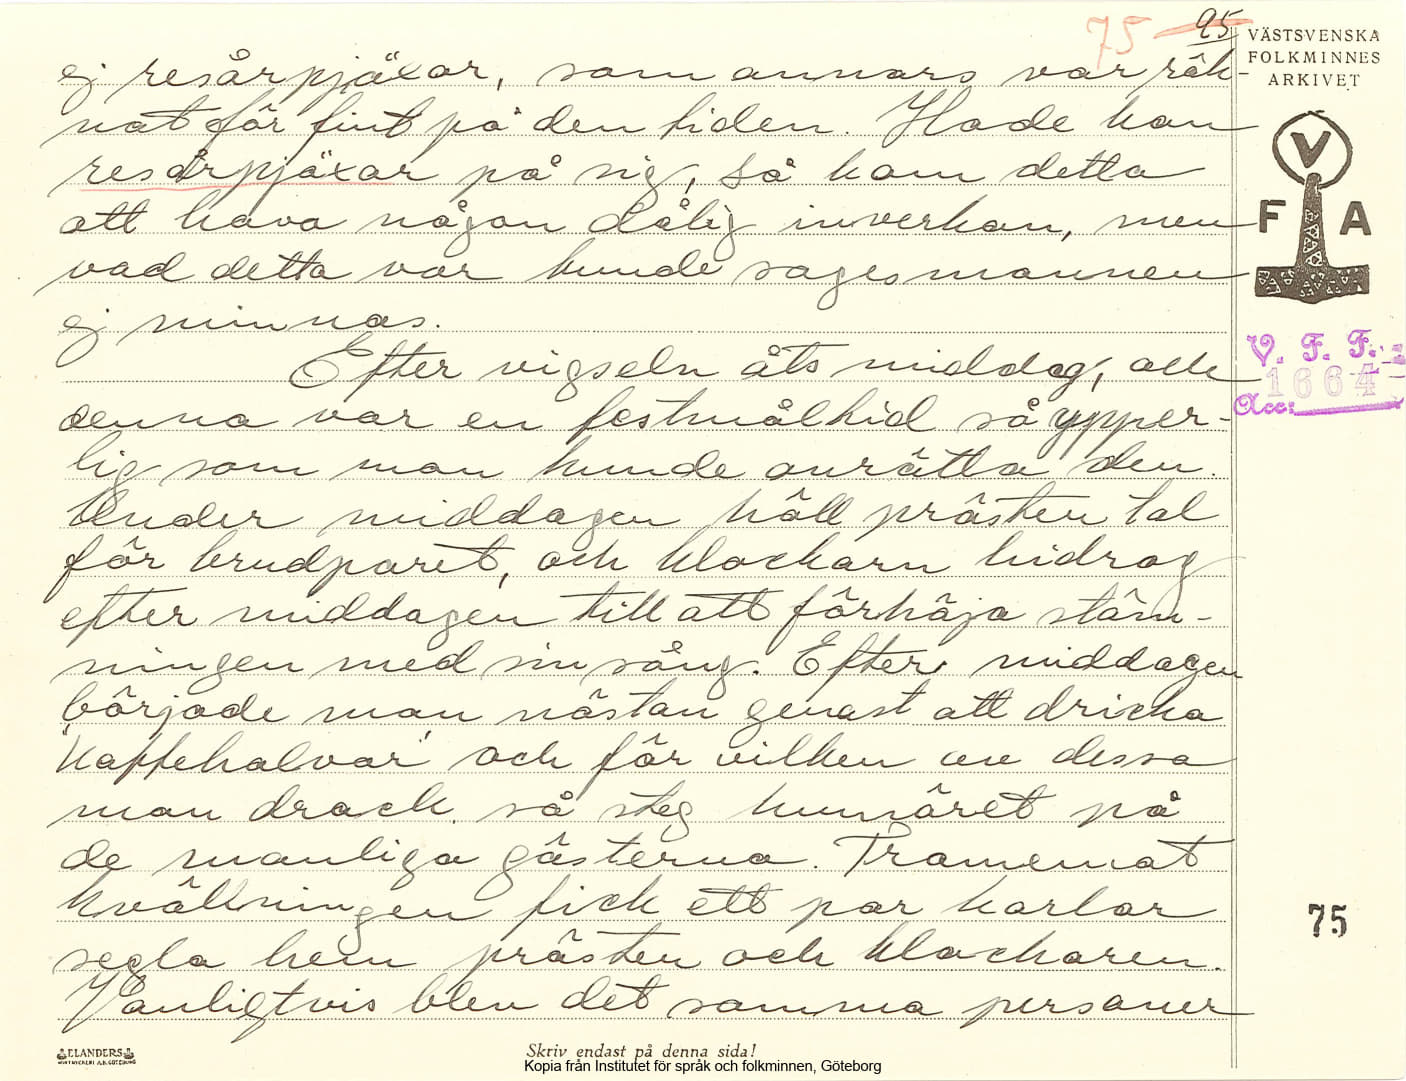 75 95
VÄSTSVENSKA
FOLKMINNES
ARKIVET
ej resårpjäxor, som annars var räk-
nat för fint på den tiden. Hade han
resårpjäxar på sig, så kom detta
att hava någon dålig inverkan, men
vad detta var kunde sagesmannen
ej minnas.
V
F A
V. F. F.
1664
Acc:
Efter vigseln åts middag, och
denna var en festmåltid så ypper-
lig som man kunde anrätta den.
Under middagen höll prästen tal
för brudparet, och klockarn bidrog
efter middagen till att förhöja stäm-
ningen med sin sång. Efter middagen
började man nästan genast att dricka
"kaffehalvar" och för vilken av dessa
man drack så steg humöret på
de manliga gästerna. Framemot
kvällningen fick ett par karlar
75
segla hem prästen och klockaren.
Vanligtvis blev det samma personer
ELANDERS
Skriv endast på denna sida!
Kopia från Institutet för språk och folkminnen, Göteborg